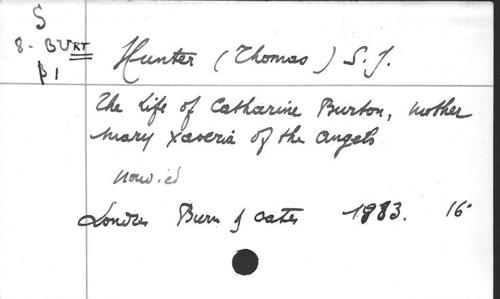 S
8 - BURT
β 1
Hunter (Thomas) S. J.
The Life of Catharine Burton, mother
Mary Xaveria of the angels
Londres Burn & Oates 1983. 16°